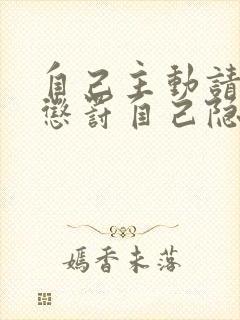 自己主動請
懲罰自己隐
嫣香未落